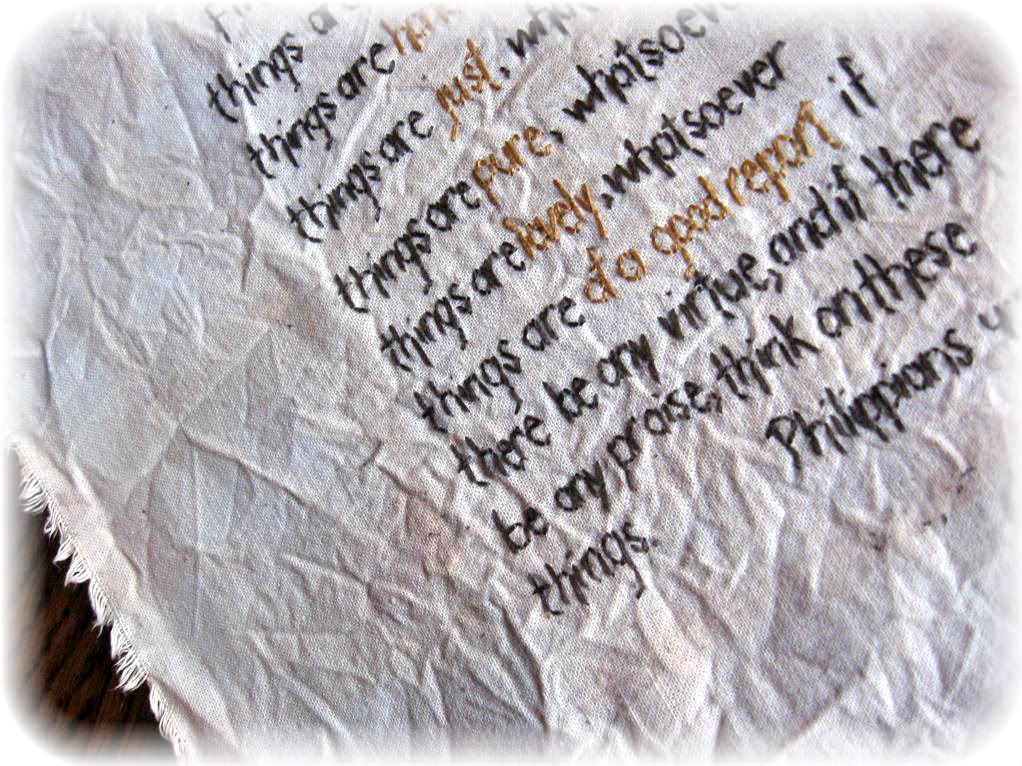 things are
things are
things are just,
things are pure, whatsoever
things are lovely, whatsoever
things are of a good report if
there be any virtue, and if there
be any praise, think on these
things.
Philippians